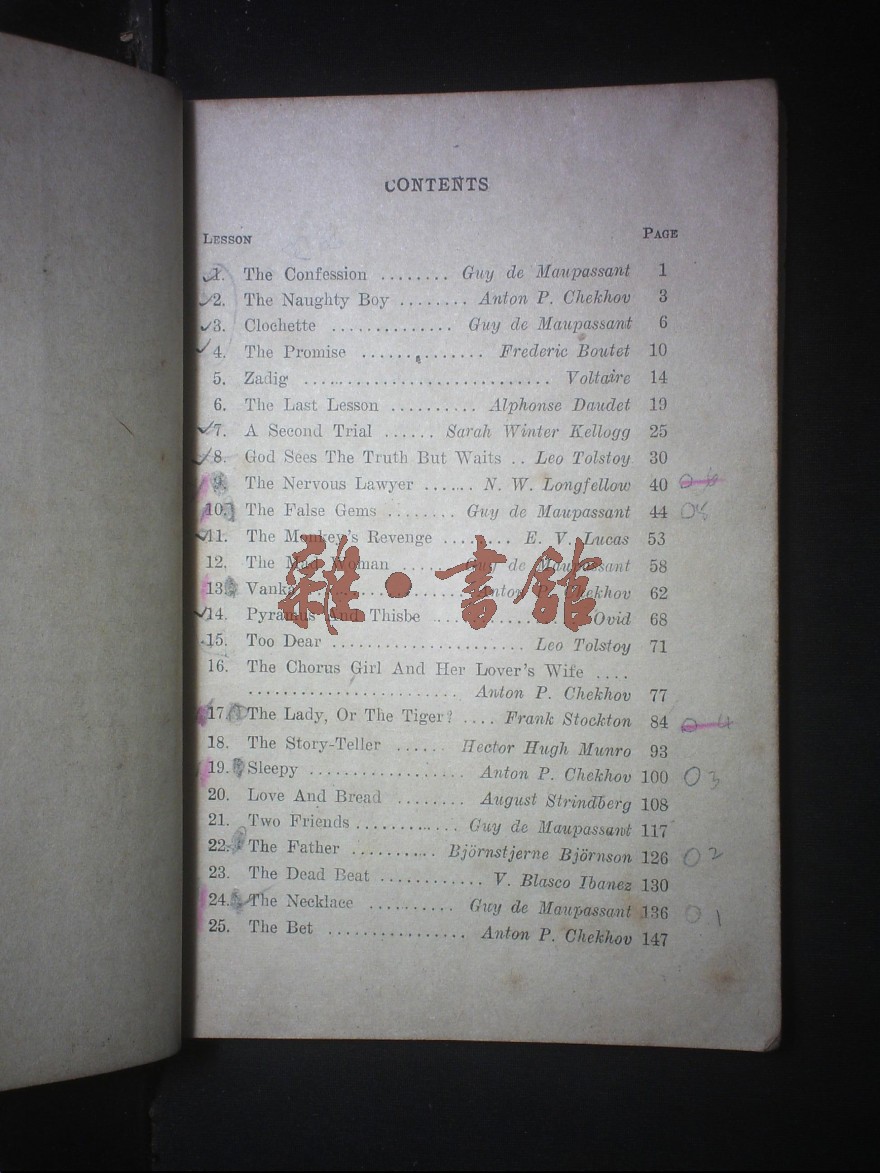 CONTENTS
LESSON PAGE
1. The Confession ........ Guy de Maupassant 1
2. The Naughty Boy ........ Anton P. Chekhov 3
3. Clochette .............. Guy de Maupassant 6
4. The Promise .............. Frederic Boutet 10
5. Zadig ............................ Voltaire 14
6. The Last Lesson .......... Alphonse Daudet 19
7. A Second Trial ...... Sarah Winter Kellogg 25
8. God Sees The Truth But Waits .. Leo Tolstoy 30
9. The Nervous Lawyer ....... N. W. Longfellow 40
10. The False Gems ........ Guy de Maupassant 44 08
11. The Monkey's Revenge ........ E. V. Lucas 53
12. The Mad Woman ........ Guy de Maupassant 58
13. Vanka .................. Anton P. Chekhov 62
14. Pyramus And Thisbe .............. Ovid 68
15. Too Dear ...................... Leo Tolstoy 71
16. The Chorus Girl And Her Lover's Wife ....
........................ Anton P. Chekhov 77
17. The Lady, Or The Tiger? .... Frank Stockton 84 04
18. The Story-Teller ...... Hector Hugh Munro 93
19. Sleepy .................. Anton P. Chekhov 100 03
20. Love And Bread ........ August Strindberg 108
21. Two Friends ............ Guy de Maupassant 117
22. The Father .......... Björnstjerne Björnson 126 02
23. The Dead Beat ............ V. Blasco Ibanez 130
24. The Necklace .......... Guy de Maupassant 136 01
25. The Bet ................ Anton P. Chekhov 147
雜·書館